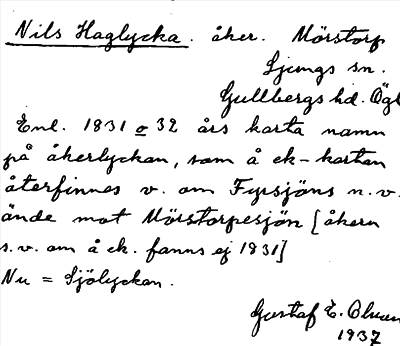 Nils Haglycka. åker. Mörstorp
Ljungs sn.
Gullbergs hd. Ögl
Enl. 1831 o 32 års karta namn
på åkerlyckan, som å ek-kartan
återfinnes v. om Fyrsjöns n.v.
ände mot Mörstorpesjön [åkern
s.v. om å ek. fanns ej 1831]
Nu = Sjölyckan.
Gustaf E.
1937